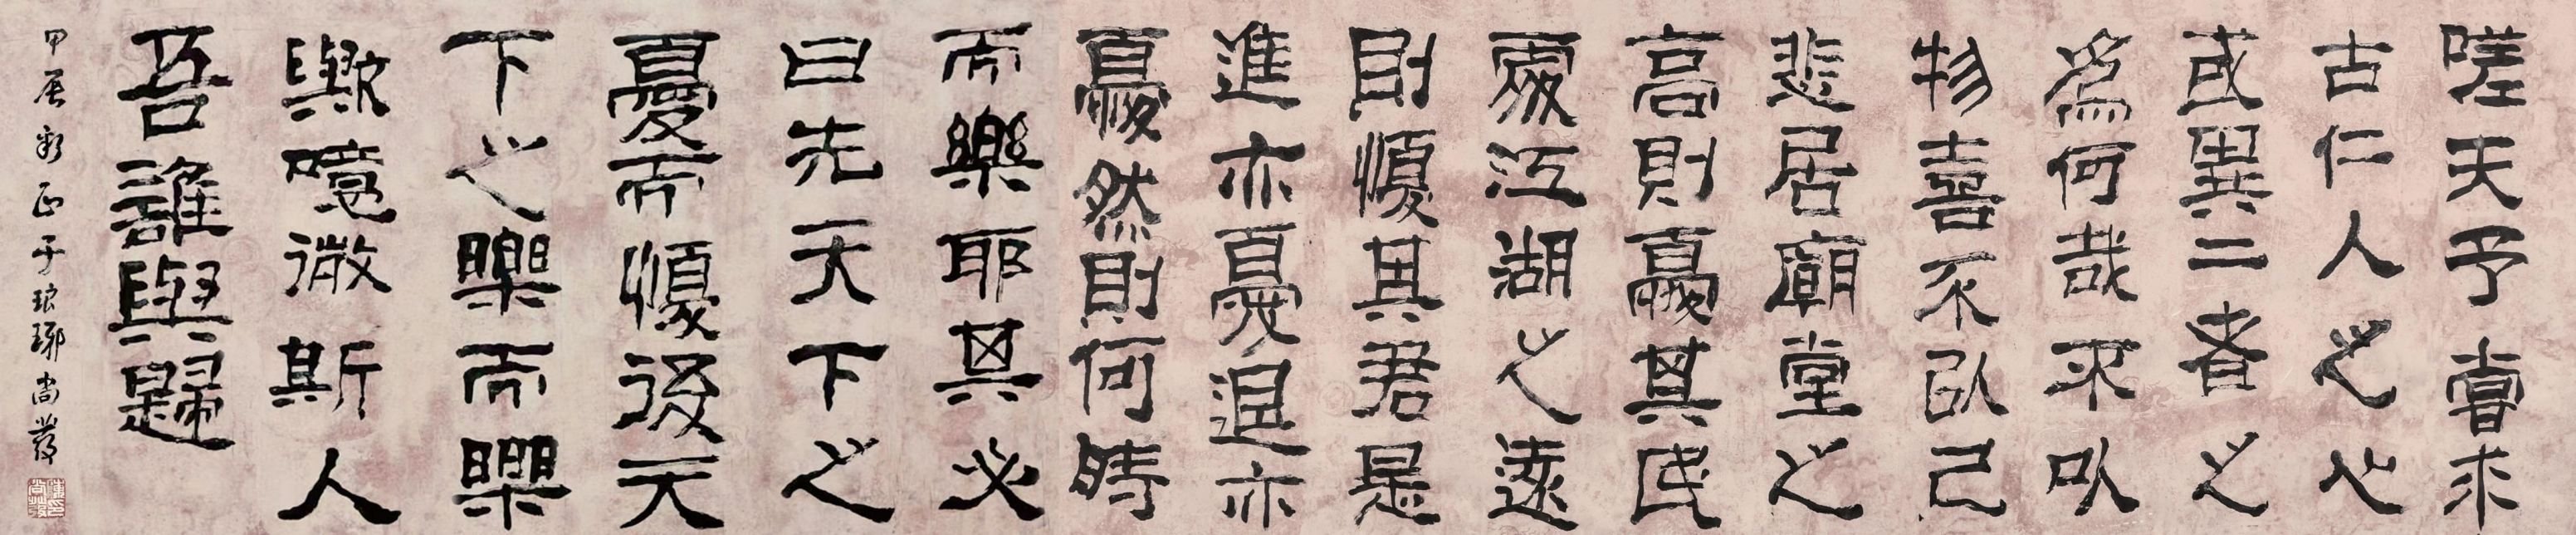 嗟夫予嘗求
古仁人之心
或異二者之
為何哉不以
物喜不以己
悲居廟堂之
高則憂其民
處江湖之遠
則憂其君是
進亦憂退亦
憂然則何時
而樂耶其必
曰先天下之
憂而憂後天
下之樂而樂
歟噫微斯人
吾誰與歸
甲辰新正于琅琊尚發